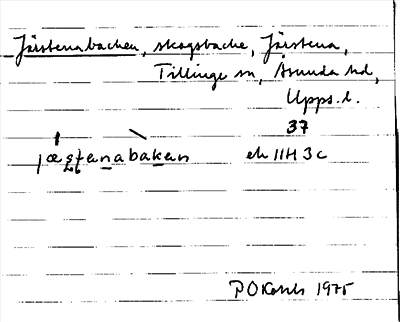 Järstenabacken, skogsbacke, Järstena,
Tillinge sn, Åsunda hd,
Upps. l.
37
jæștenabakan ek 11H 3c
P O 1975